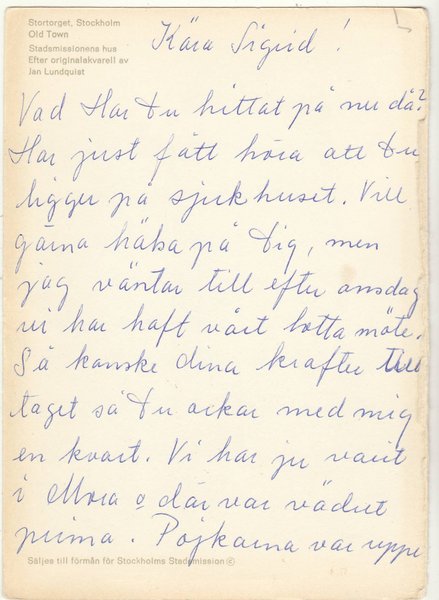 Stortorget, Stockholm
Old Town
Stadsmissionens hus
Efter originalakvarell av
Jan Lundquist
Kära Sigrid!
Vad Har Du hittat på nu då?
Har just fått höra att Du
ligger på sjukhuset. Vill
gärna häka på Dig, men
jag väntar till efter onsdag
vi har haft vårt lotta möte.
Så kanske dina krafter till
taget så Du orkar med mig
en kvart. Vi har ju varit
i Mora o där var vädret
prima. Pojkarna var uppe
Säljes till förmån för Stockholms Stadsmission ©